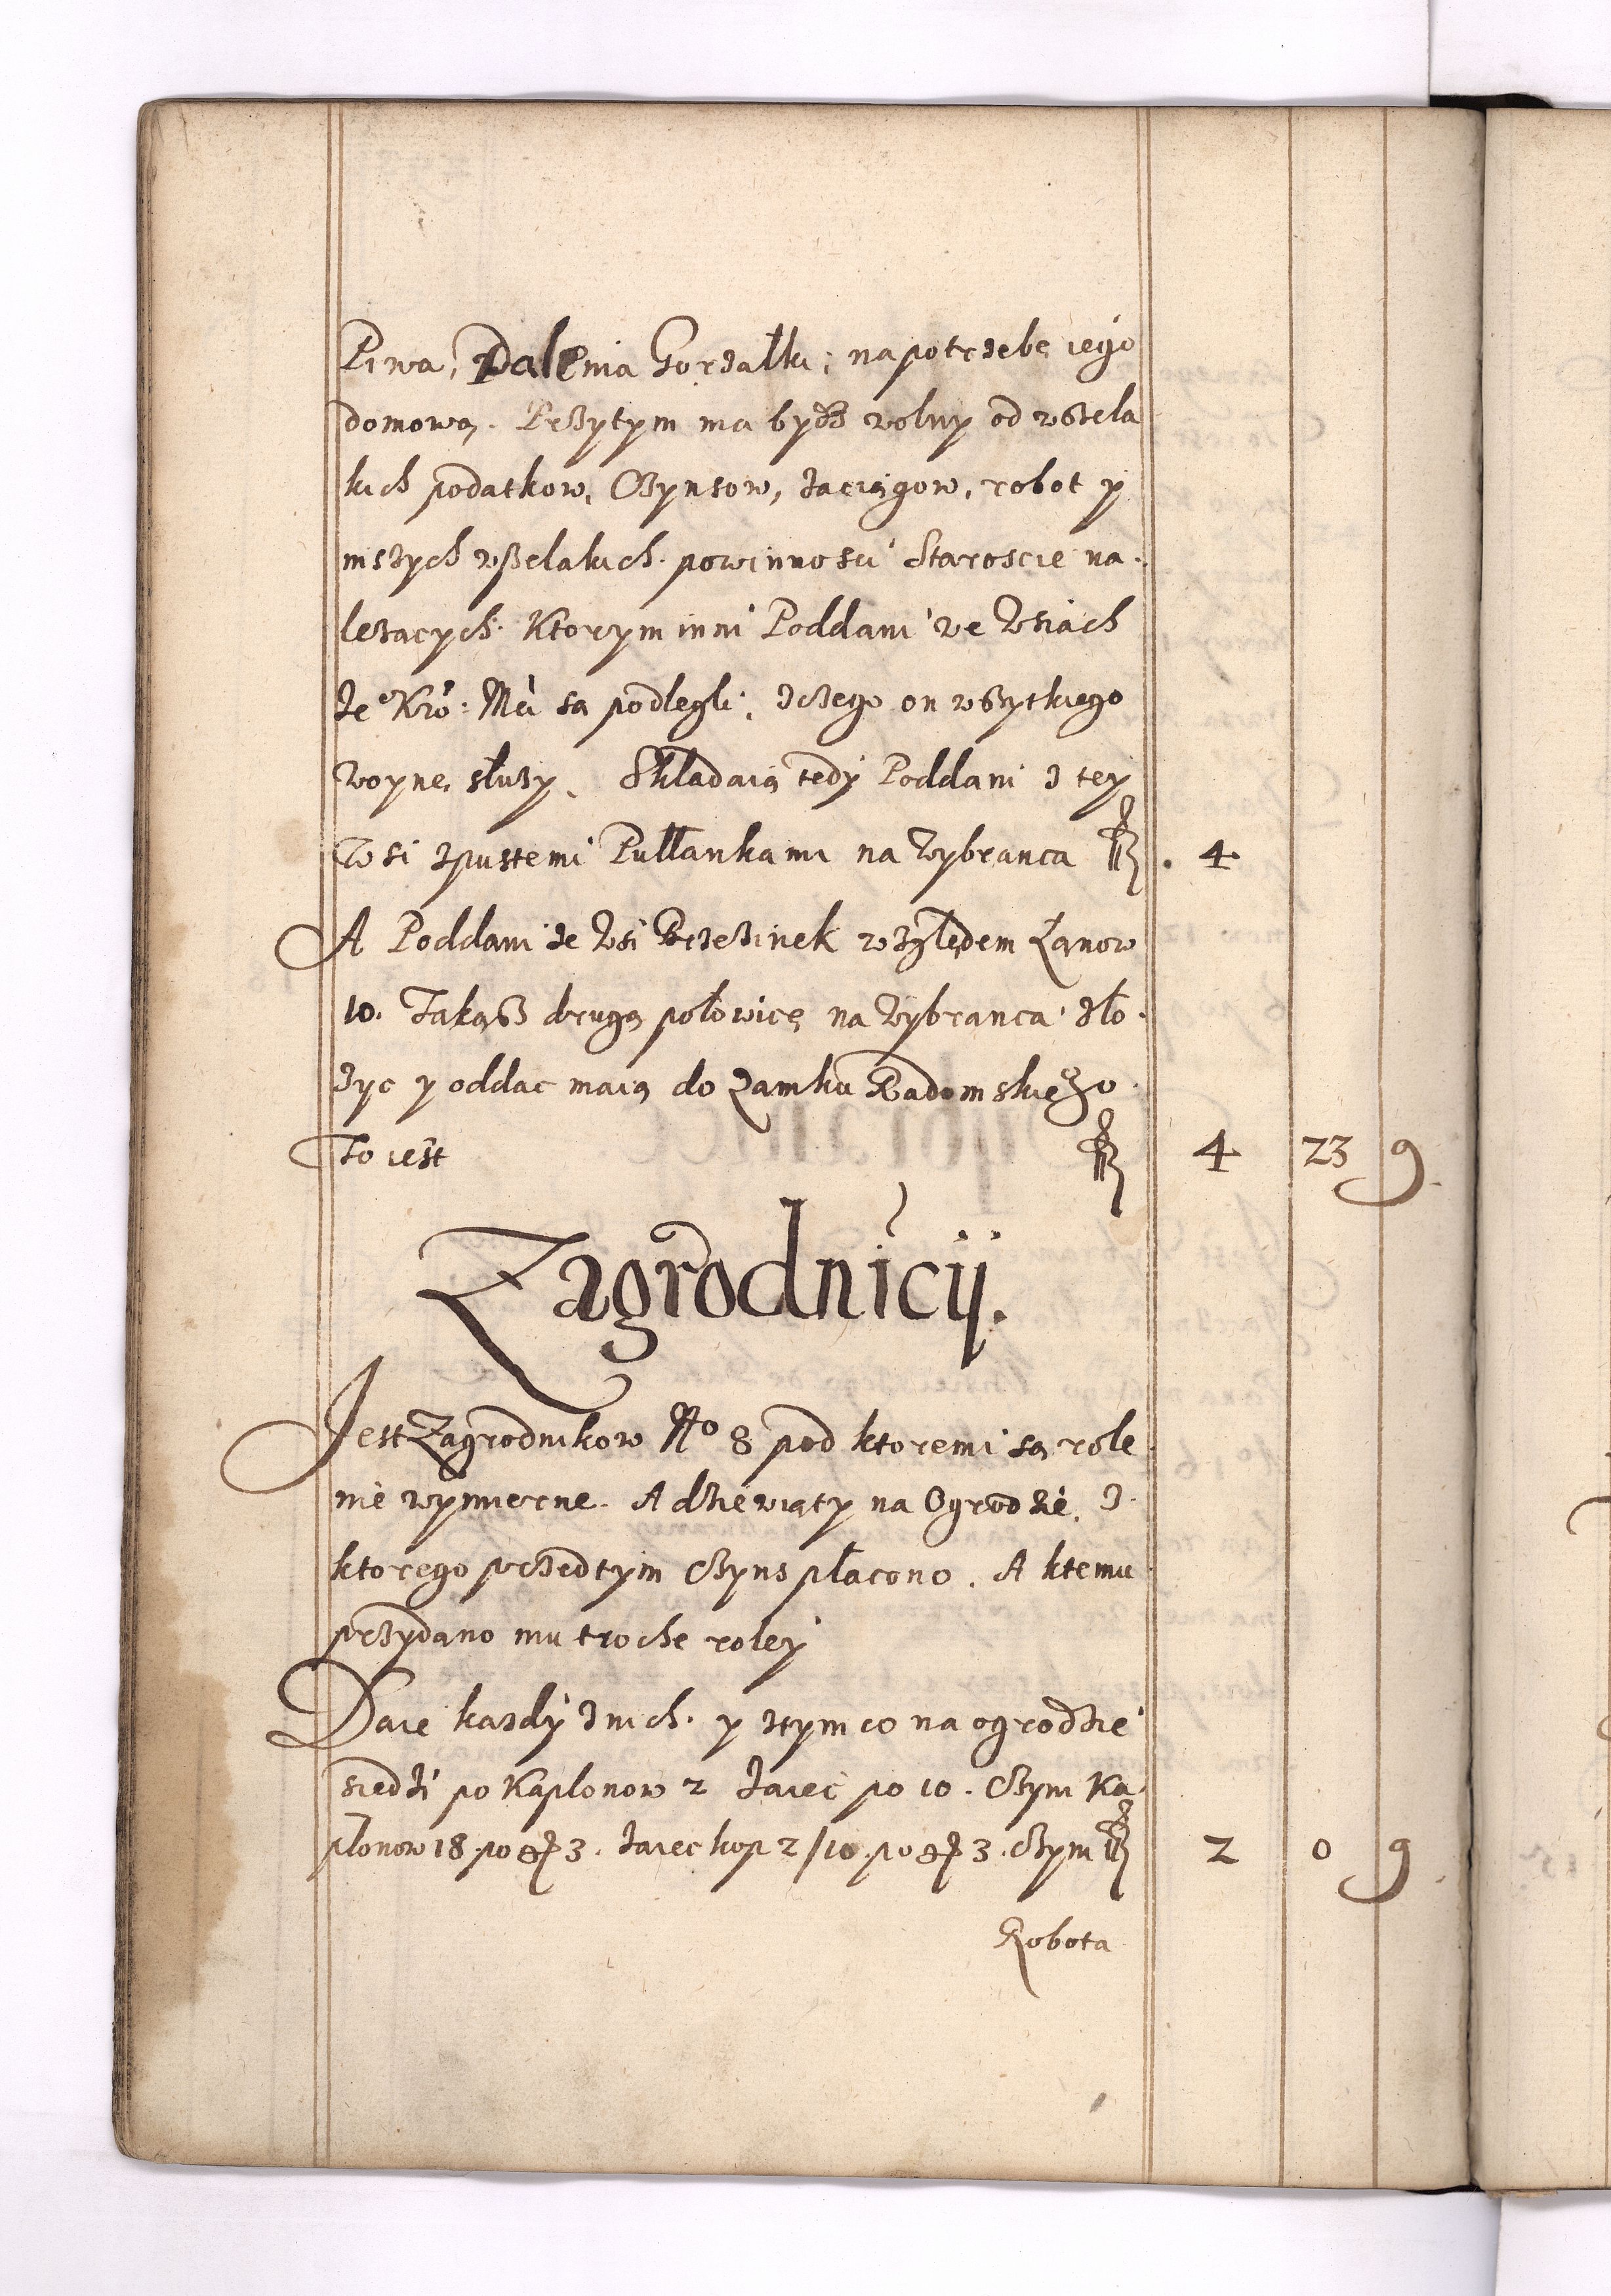 Piwa, Palenia Gorzałki, na potrzebę iego
domową. Przytym ma bydź wolny od wszela
kich podatkow, Czynsow, zaciągow, robot y
inszych wszelakich powinnosci Staroscie na
lezacych. Ktorym inni Poddani we Wsiach
Je° Kró: Mci sa podlegli, z czego on wszytkiego
woynę słuzy. Składaią tedy Poddani z tey
Wsi zpustemi Pułłankami na Wybranca . 4
A Poddani ze Wsi Brzezinek względem Łanow
10. Takąsz drugą połowicę na Wybranca zło
zyc y oddac maią do Zamku Radomskiego
To iest 4 23 9
Zagrodnicy.
Jest Zagrodnikow No 8 pod ktoremi są role
nie wymierne. A dziewiąty na Ogrodzie, z
ktorego przedtym Czyns płacono. A ktemu
przydano mu troche roley
Daie kazdy znich y ztym co na ogrodzie
siedzi po Kapłonow 2 Jaiec po 10. Czyni Ka
płonow 18 po gr 3. Jaiec kop 2/10 po gr 3. Czyni 2 0 9
Robota